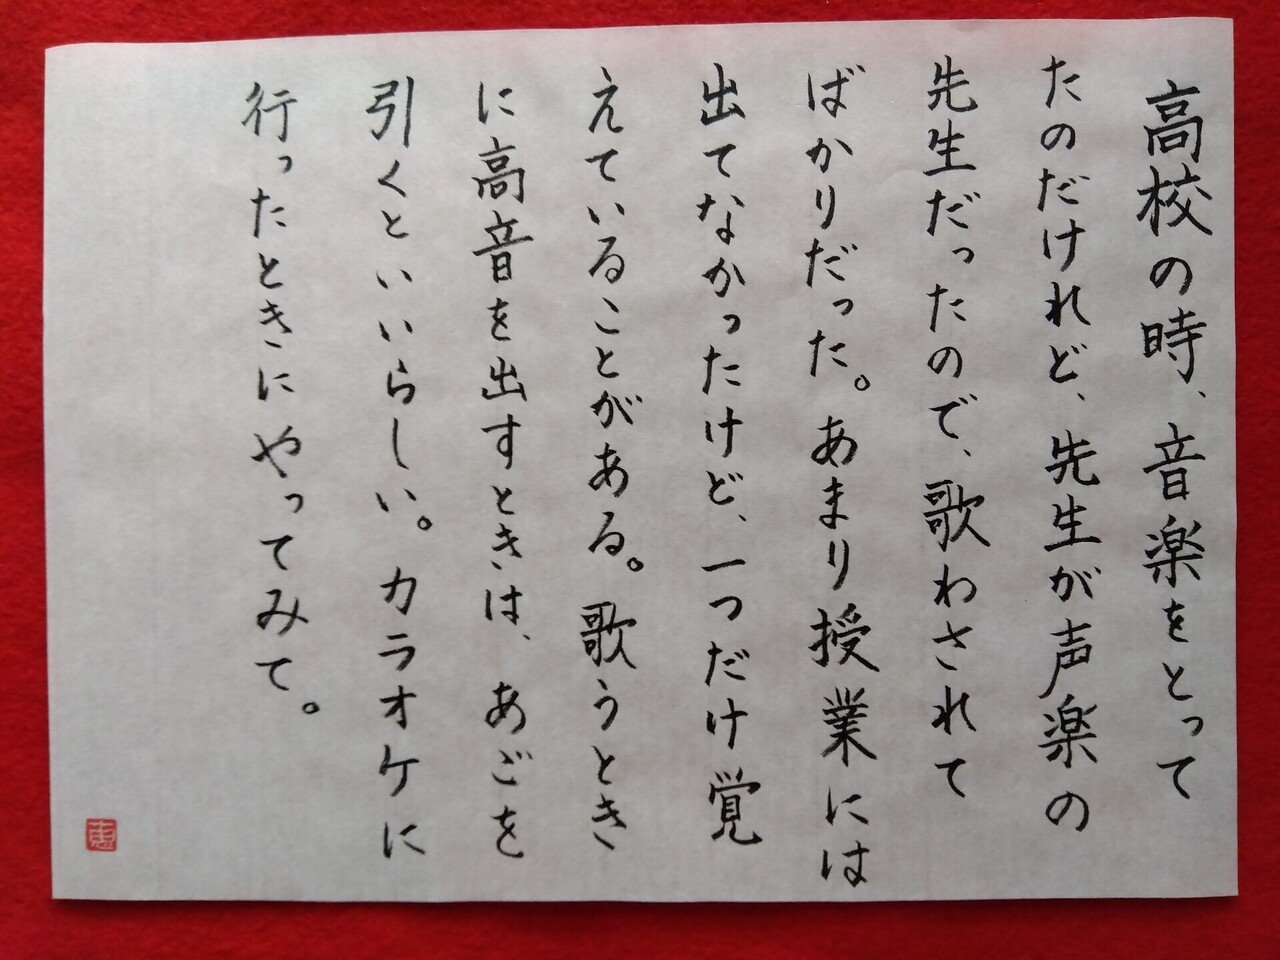 高校の時、音楽をとって
たのだけれど、先生が声楽の
先生だったので、歌わされて
ばかりだった。あまり授業には
出てなかったけど、一つだけ覚
えていることがある。歌うとき
に高音を出すときは、あごを
引くといいらしい。カラオケに
行ったときにやってみて。
恵